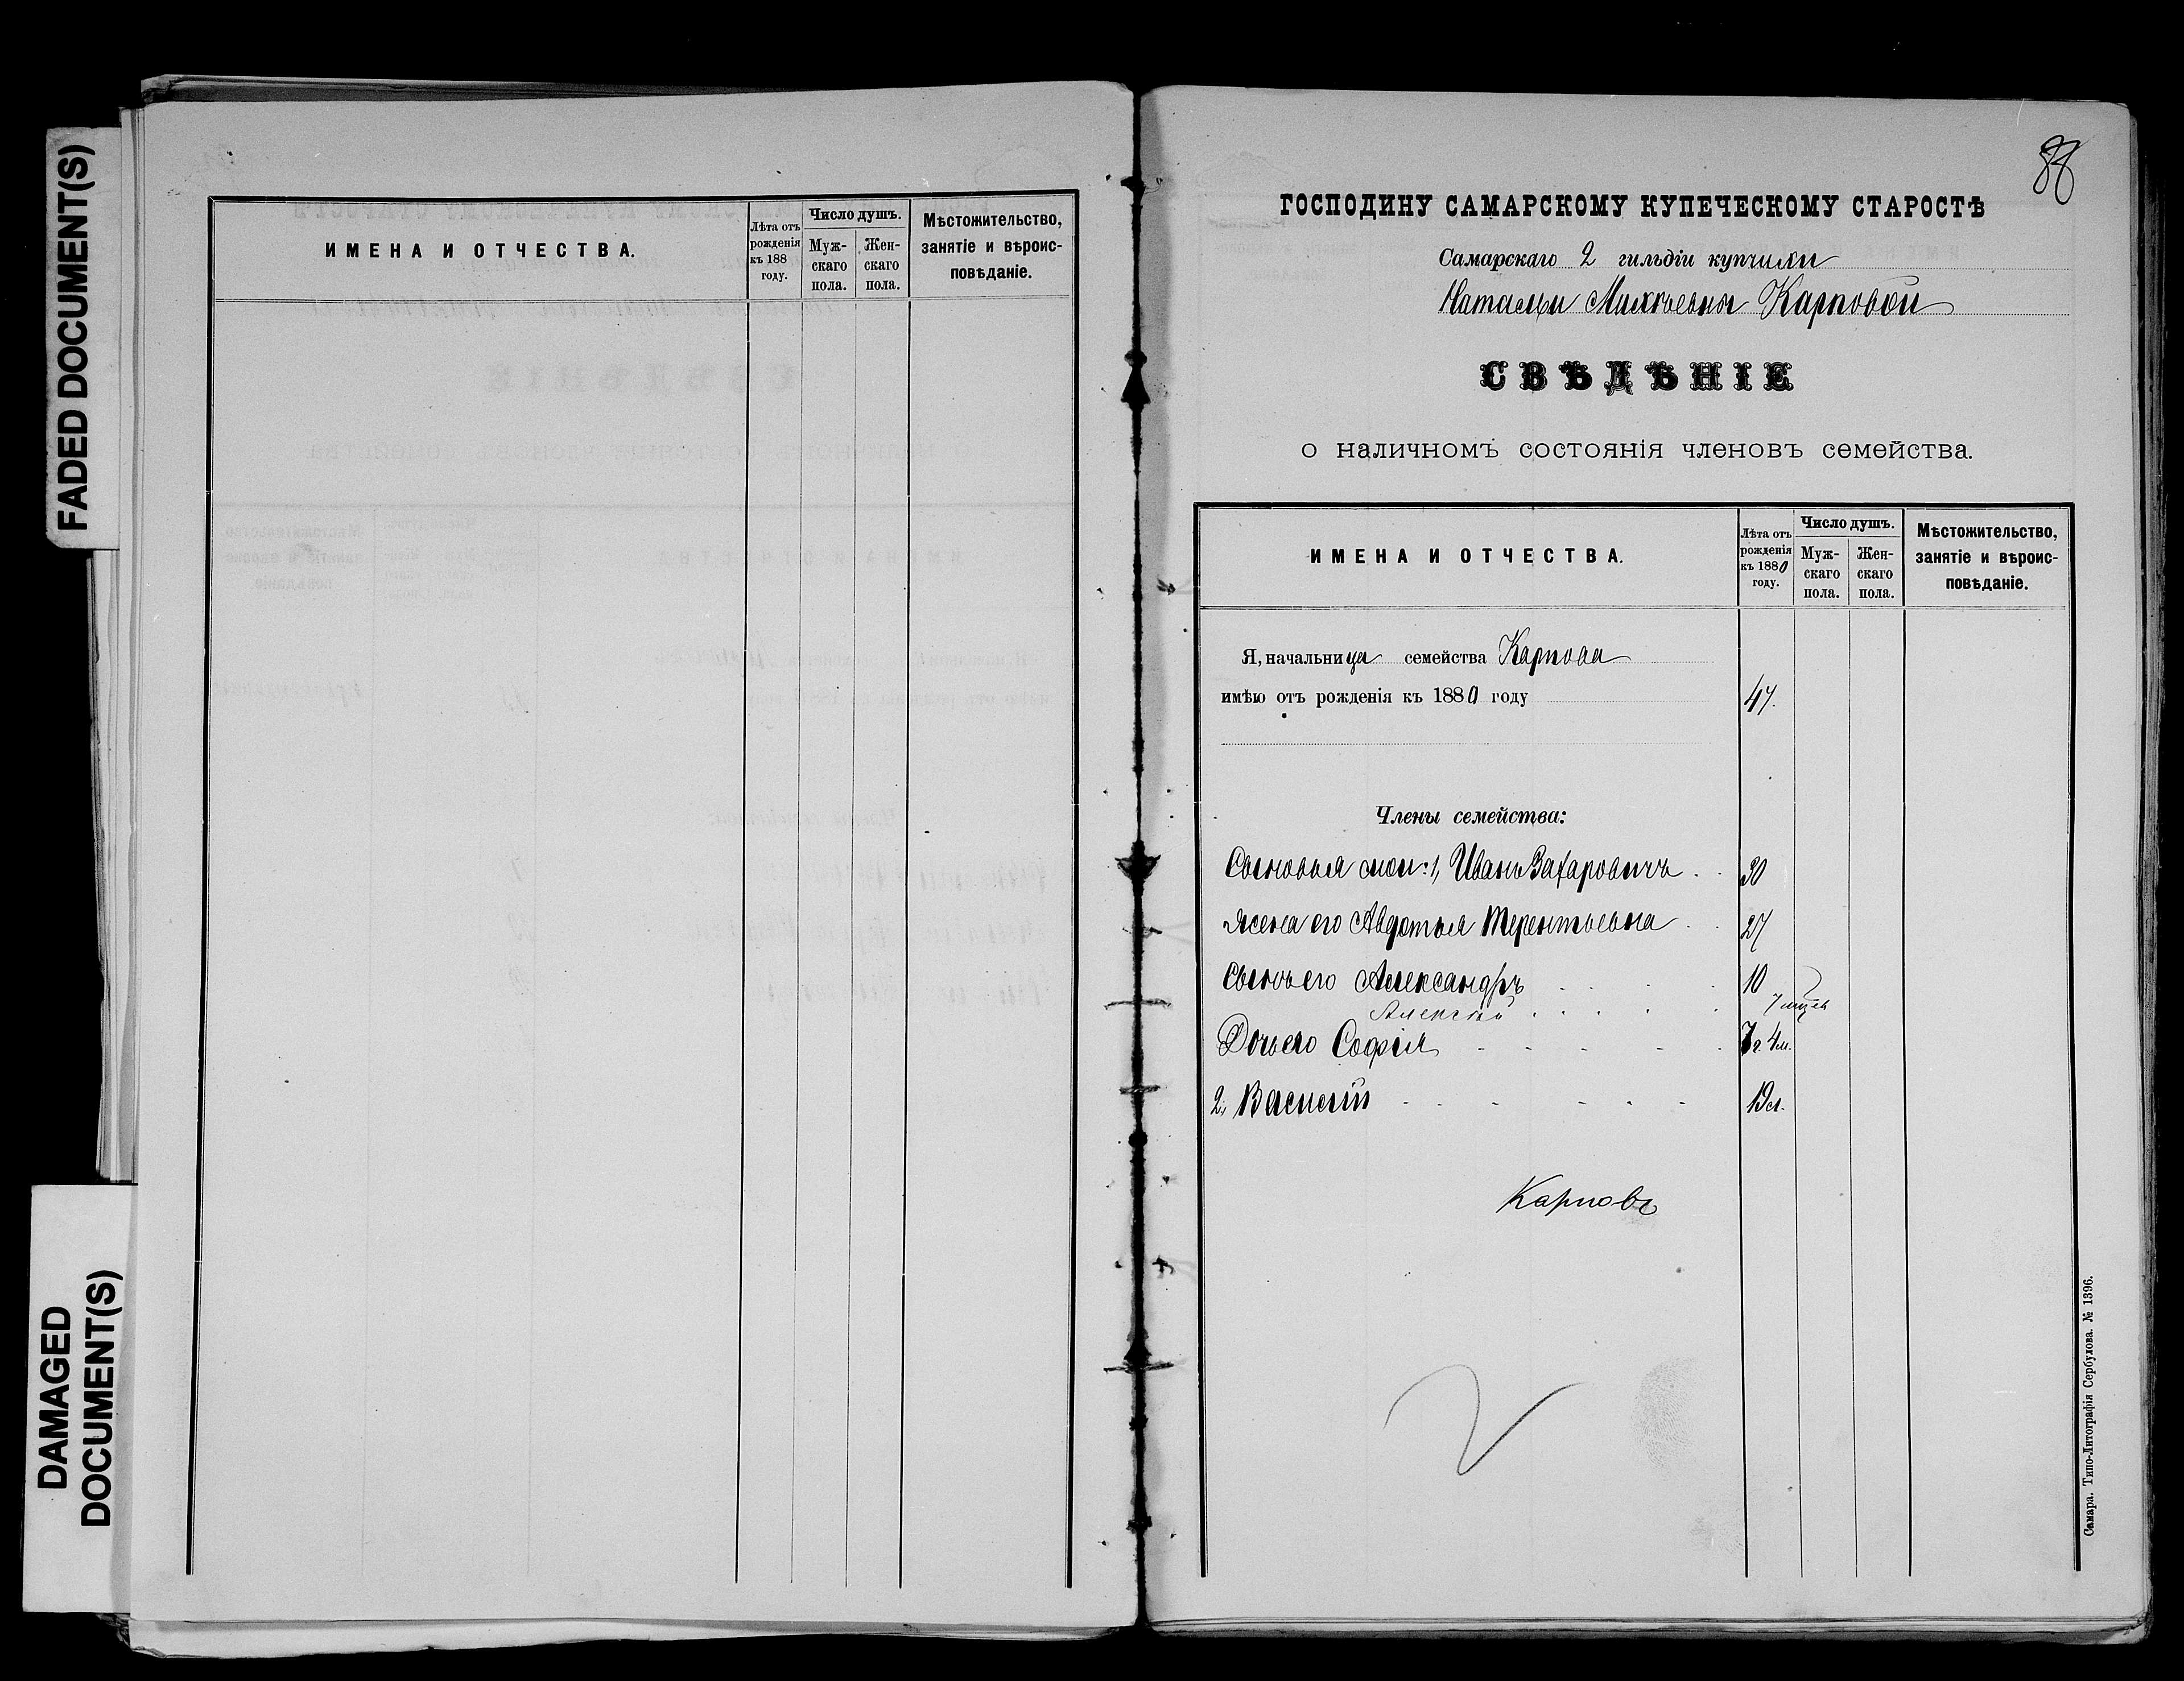 FADED DOCUMENT(S)
DAMAGED
DOCUMENT(S)
ИМЕНА И ОТЧЕСТВА.
Лѣта отъ
рожденія
къ 188
году.
Число душъ.
Муж-
скаго
пола.
Жен-
скаго
пола.
Мѣстожительство,
занятіе и вѣроис-
повѣданіе.
88
ГОСПОДИНУ САМАРСКОМУ КУПЕЧЕСКОМУ СТАРОСТѢ
Самарскаго 2 гильдіи купчихи
Натальи Михѣевны Карповой
СВѢДѢНІЕ
о наличномъ состоянія членовъ семейства.
ИМЕНА И ОТЧЕСТВА.
Лѣта отъ
рожденія
къ 1880
году.
Число душъ.
Муж-
скаго
пола.
Жен-
скаго
пола.
Мѣстожительство,
занятіе и вѣроис-
повѣданіе.
Я, начальница семейства Карпова
имѣю отъ рожденія къ 1880 году 47.
Члены семейства:
Сыновья мои: 1, Иванъ Захаровичъ 30
жена его Авдотья Терентьевна 27
Сынъ его Александръ 10
Алексѣй 7 мѣс
Дочь его Софія 7 г. 4 м.
2, Василій 19 л.
Карповъ
Самара. Типо-Литографія Сербулова. № 1396.